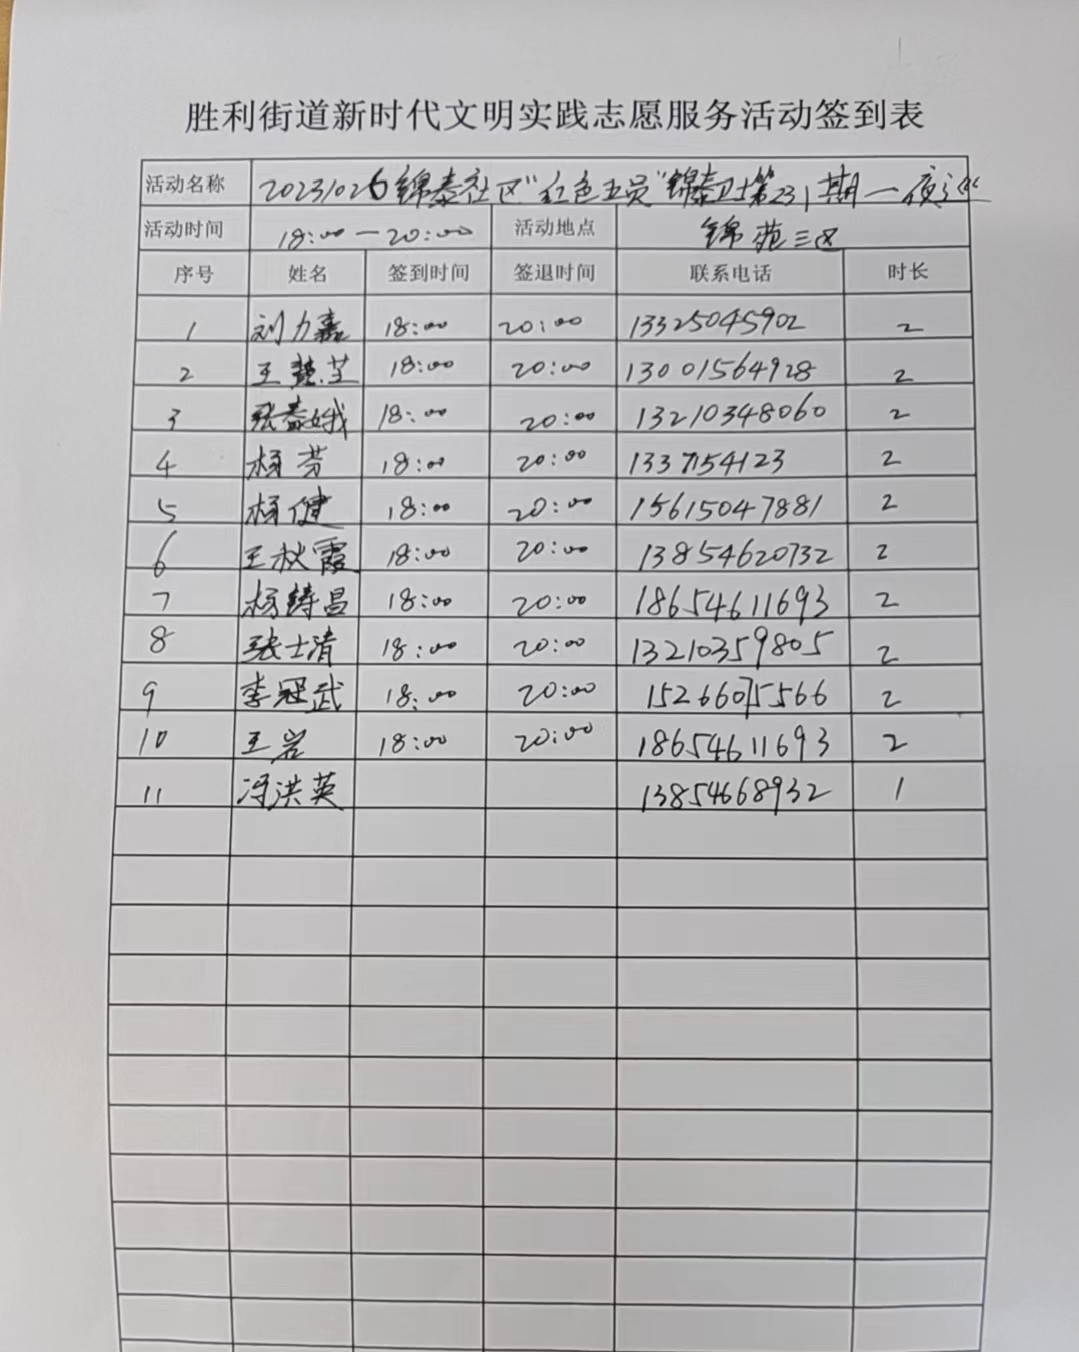 胜利街道新时代文明实践志愿服务活动签到表
活动名称 20231026锦泰社区“红色五员”锦泰卫士第231期一夜巡
活动时间 18:00—20:00 活动地点 锦苑三区
序号 姓名 签到时间 签退时间 联系电话 时长
1 刘力嘉 18:00 20:00 13325045902 2
2 王慧芝 18:00 20:00 13001564928 2
3 张春娥 18:00 20:00 13210348060 2
4 杨芳 18:00 20:00 1337154123 2
5 杨健 18:00 20:00 15615047881 2
6 王秋霞 18:00 20:00 13854620732 2
7 杨铸昌 18:00 20:00 18654611693 2
8 张士清 18:00 20:00 13210359805 2
9 李冠武 18:00 20:00 15266075566 2
10 王岩 18:00 20:00 18654611693 2
11 冯洪英 13854668932 1